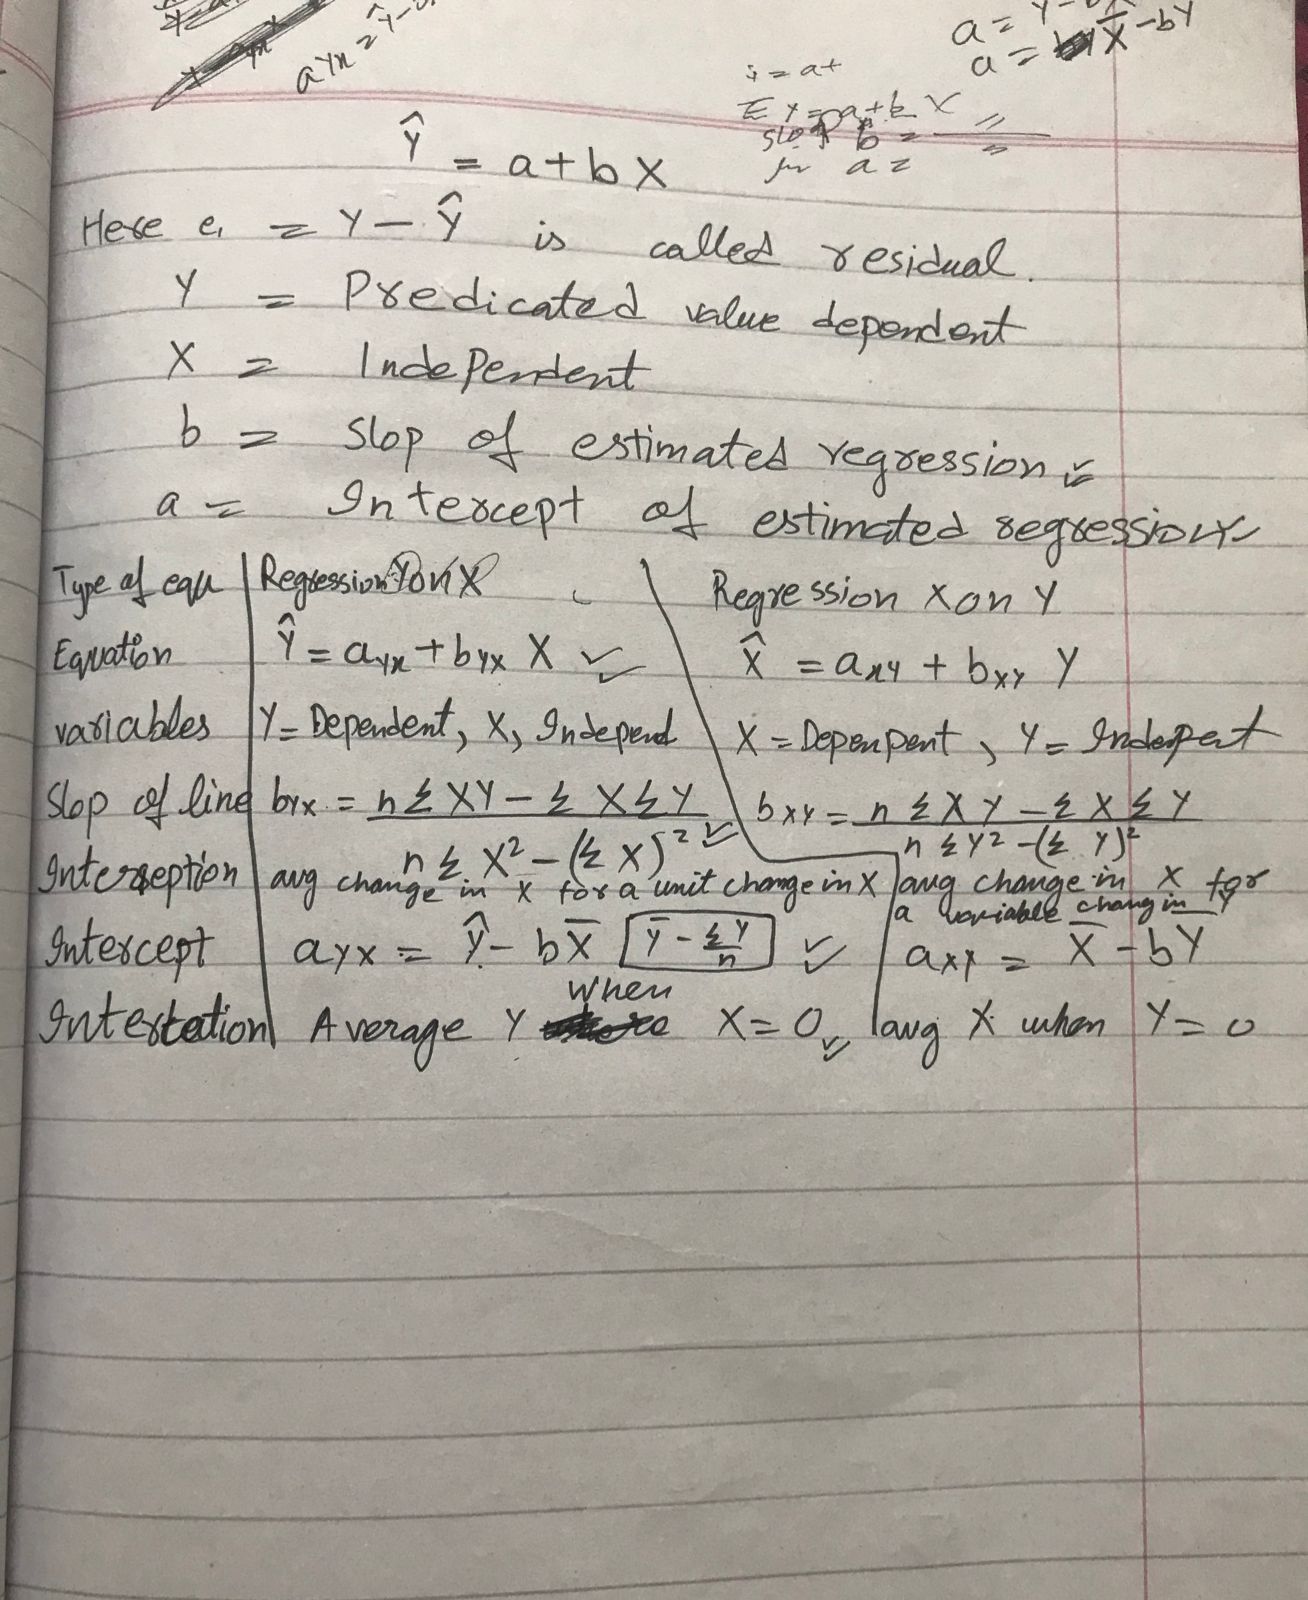 aYx = Ŷ -
a = Y - b
a = X̄ - bY
i = a +
Ŷ = a + b X
Here e, = Y - Ŷ is called residual.
Y = Predicated value dependent
X = Independent
b = Slop of estimated regression
a = Intercept of estimated regression
Type of equ Regression Y on X Regression X on Y
Equation Ŷ = aYx + bYx X X̂ = axY + bxY Y
variables Y = Dependent, X, Independ X = Depenpent, Y = Indepent
Slop of line bYx = n Σ XY - Σ X Σ Y / n Σ X² - (Σ X)² bXY = n Σ X Y - Σ X Σ Y / n Σ Y² - (Σ Y)²
Interseption avg change in x for a unit change in X avg change in x for a variable chang in Y
Intercept aYX = Ŷ - bX̄ Ȳ - ΣY/n axy = X̄ - bY
Intertation Average Y When X = 0 avg X when Y = 0